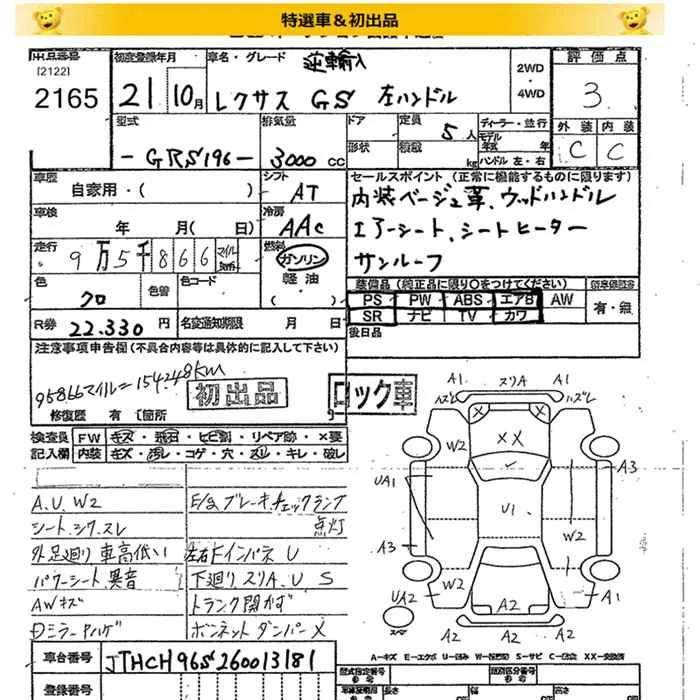 特選車＆初出品
出品番号 初度登録年月 車名・グレード 逆輸入 2WD 4WD 評価点
[2122]
2165 21 10月 レクサス GS 左ハンドル 3
型式 排気量 ドア 定員 ディーラー・並行 外装 内装
-GRS196- 3000cc 形状 積載 5人 kg モデル年式 年 ハンドル 左・右 C C
車歴 シフト セールスポイント (正常に機能するものに限ります)
自家用・( ) AT 内装ベージュ革、ウッドハンドル
車検 冷房 エアーシート、シートヒーター
年 月( 日) AAC サンルーフ
走行 燃料
9万5千866 マイル ガソリン
色 色替 色コード 軽油 装備品 (純正品に限り○をつけてください)
クロ ( ) PS PW ABS エアB AW 有・無
R券 22.330円 名変通知期限 月 日 SR ナビ TV カワ
後日品
注意事項申告欄 (不具合内容等は具体的に記入して下さい)
95866マイル=154248km
初出品 ロック車
修復歴 有 〔箇所 〕
検査員 FW キズ・飛石・ヒビ割・リペア跡・×要
記入欄 内装 キズ・汚レ・コゲ・穴・スレ・キレ・破レ
A.U.W2 E/g.ブレーキ.チェックランプ
点灯
シート.シワ.スレ
外足廻り 車高低い 左右Fインパネ U
パワーシート異音 下廻リスリA.U.S
AWキズ トランク開かず
Dミラーアハゲ ボーンネットダンパー×
車台番号 JTHCH96S260013181
登録番号
A1 スリA A1
ハズレ ハズレ
× ×
W2 ××
UA1 A3
U1
A3 W2
W2
UA2 A2 A1
スペア A2 A2 A2
A-キズ E-エクボ U-凹み W-補修跡 S-サビ C-腐食 XX-交換済
型式指定番号 類別区分番号
参考 参考
長さ 幅 高さ